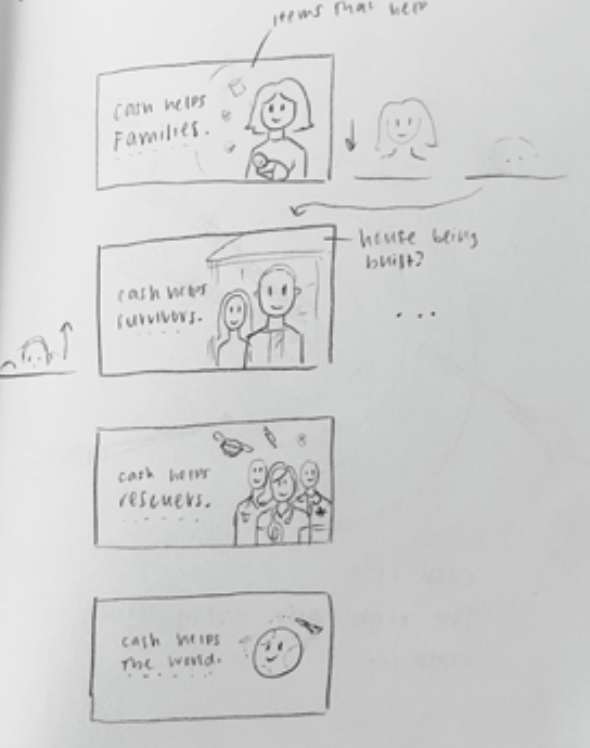 items that help
cash helps
Families.
house being
built?
cash helps
survivors.
...
cash helps
rescuers.
cash helps
the world.